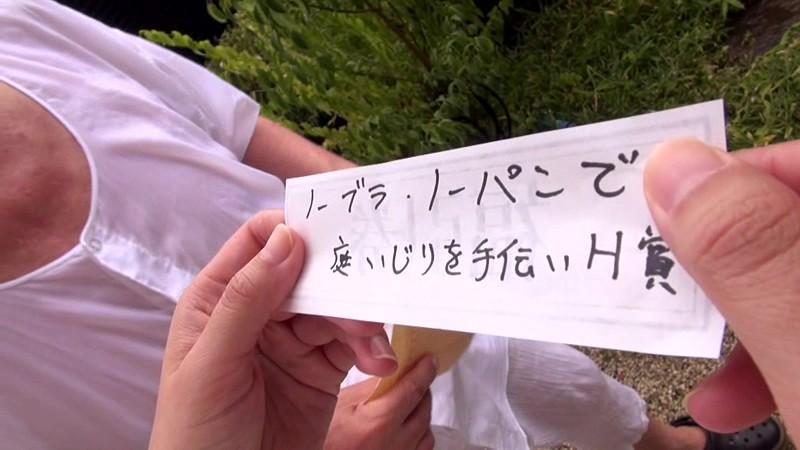 ノーブラ・ノーパンで
庭いじりを手伝いH賞